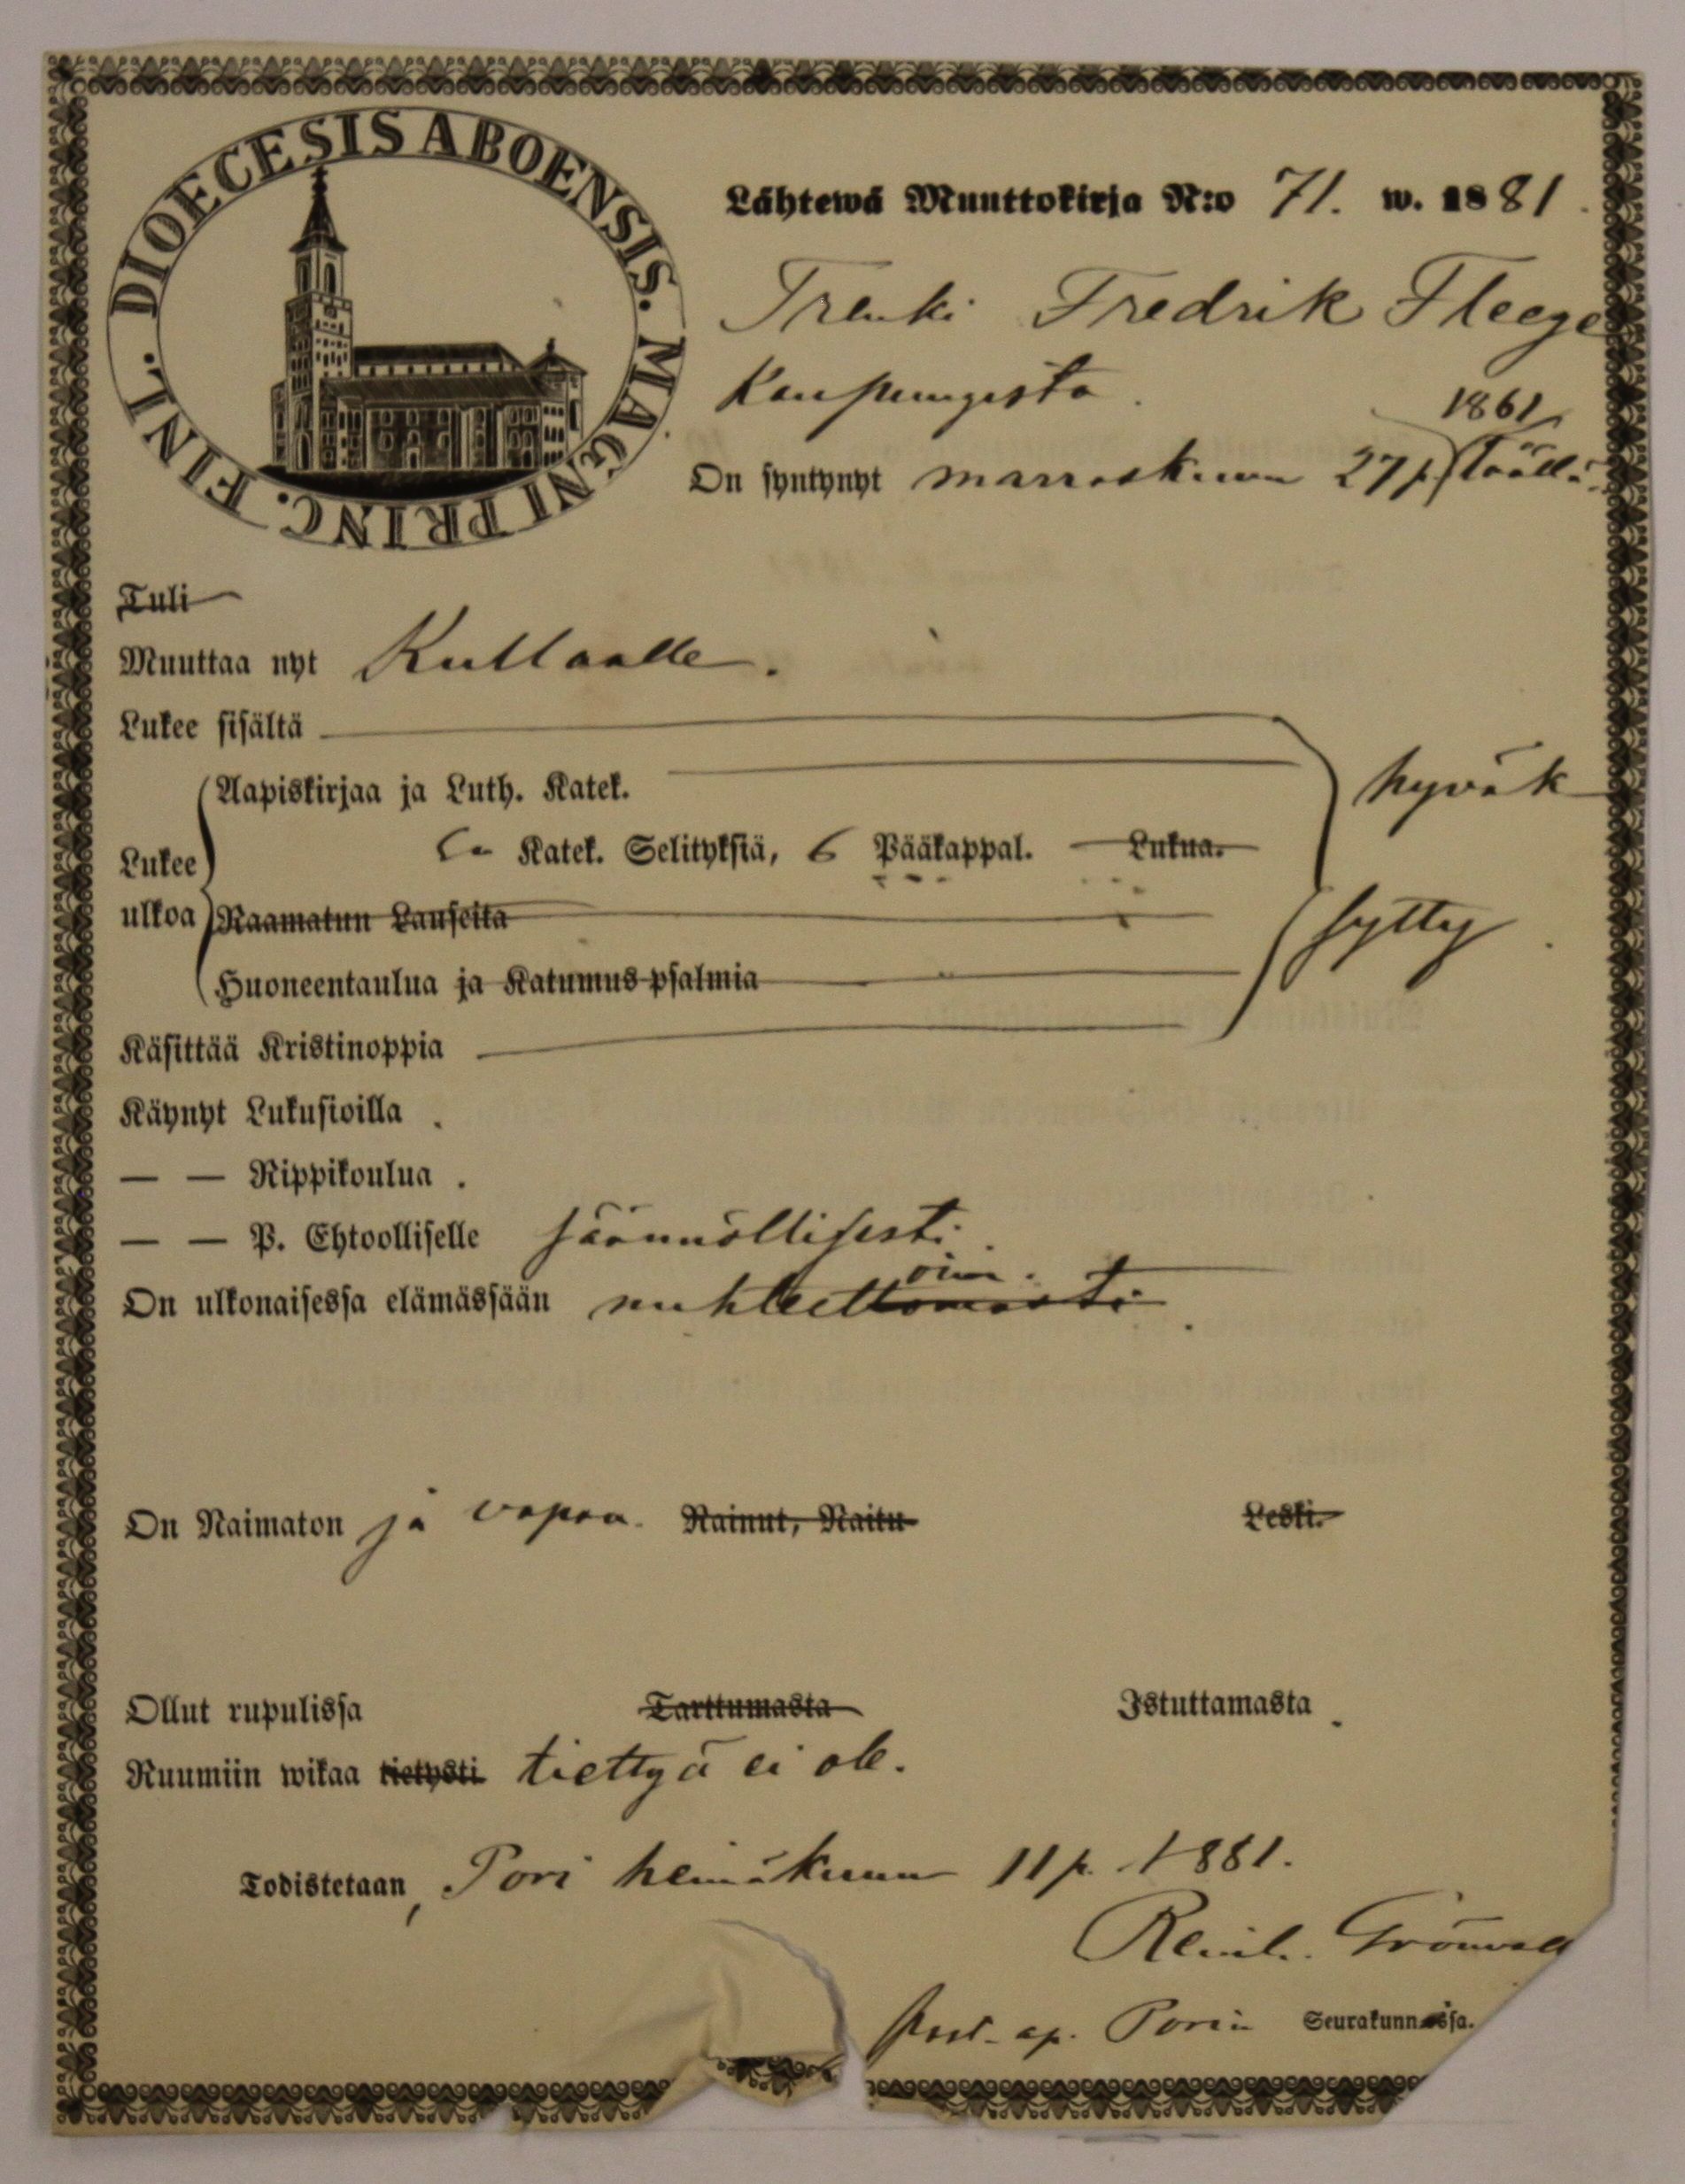 DIOECESIS ABOENSIS. MAGNI PRINC. FINL.
Lähtewä Muuttokirja N:o 71. w. 1881.
Trenki Fredrik Fleege
Kaupungista.
1861
On syntynyt marraskuun 27 p. täällä.
Tuli
Muuttaa nyt Kullaalle.
Lukee sisältä
hyväk
Aapiskirjaa ja Luth. Katek.
Lukee
Katek. Selityksiä, 6 Pääkappal. Lukua.
ulkoa
Raamatun Lauseita
sytty.
Huoneentaulua ja Katumus-psalmia
Käsittää Kristinoppia
Käynyt Lukusioilla.
— — Rippikoulua.
— — P. Ehtoolliselle säännöllisesti.
oin.
On ulkonaisessa elämässään nuhteettomasti.
On Naimaton ja vapaa. Nainut, Naitu Leski.
Ollut rupulissa Tarttumasta Istuttamasta.
Ruumiin wikaa tietysti tiettyä ei ole.
Todistetaan, Pori heinäkuun 11 p. 1881.
Reinh. Grönvall
Past. ap. Porin Seurakunnassa.